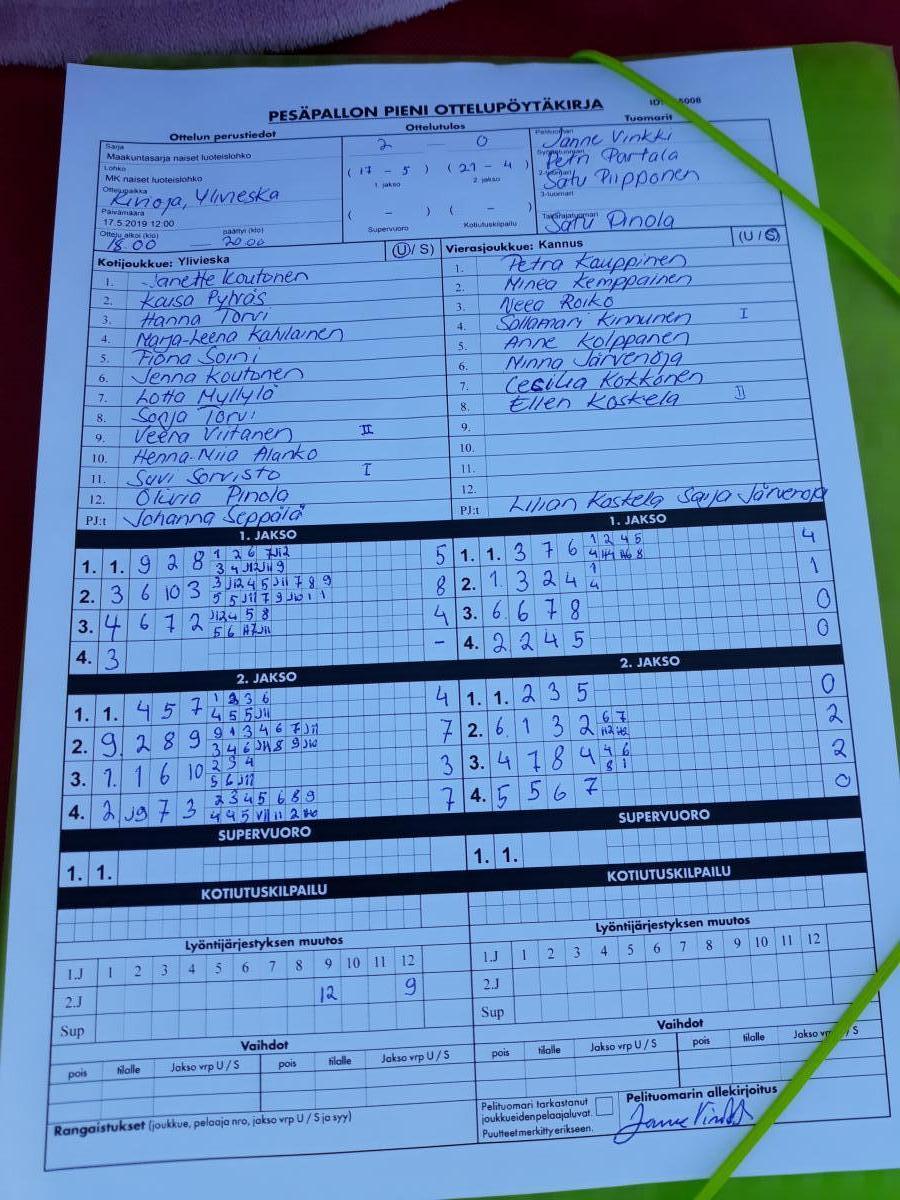 PESÄPALLON PIENI OTTELUPÖYTÄKIRJA
Ottelun perustiedot
Ottelutulos
Tuomarit
Sarja
Maakuntasarja naiset luoteislohko
Lohko
MK naiset luoteislohko
Ottelupaikka
Ylivieska
Päivämäärä
17.5.2019 12:00
Ottelu alkoi (klo) päättyi (klo)
18.00 — 20.00
2 — 0
(17 - 5) (21 - 4)
1. jakso 2. jakso
( - ) ( - )
Supervuoro Kotiutuskilpailu
Pelituomari
Janne Vinkki
Petri Partala
2-tuomari
Satu Piipponen
3-tuomari
Takarajatuomari
Satu Pinola
Kotijoukkue: Ylivieska (U/ S)
1. Janette Koutonen
2. Kaisa Pylväs
3. Hanna Torvi
4. Marja-Leena Kahilainen
5. Fiona Soini
6. Jenna Koutonen
7. Lotta Myllylä
8. Sonja Torvi
9. Veera Viitanen II
10. Henna-Niia Alanko
11. Suvi Sorvisto I
12. Olivia Pinola
PJ:t Johanna Seppälä
Vierasjoukkue: Kannus (U / S)
1. Petra Kauppinen
2. Minea Kemppainen
3. Neea Roiko
4. Sallamari Kinnunen I
5. Anne Kolppanen
6. Minna Järvenoja
7. Cecilia Kokkonen
8. Ellen Koskela II
9.
10.
11.
12.
PJ:t Lilian Koskela Saija Järvenoja
1. JAKSO
1. 1. 9 2 8 5
2. 3 6 10 3 8
3. 4 6 7 2 4
4. 3 -
1. JAKSO
1. 1. 3 7 6 4
2. 1 3 2 4 1
3. 6 6 7 8 0
4. 2 2 4 5 0
2. JAKSO
1. 1. 4 5 7 4
2. 9 2 8 9 7
3. 1 1 6 10 3
4. 2 J9 7 3 7
2. JAKSO
1. 1. 2 3 5 0
2. 6 1 3 2 2
3. 4 7 8 4 2
4. 5 5 6 7 0
SUPERVUORO
1. 1.
SUPERVUORO
1. 1.
KOTIUTUSKILPAILU
KOTIUTUSKILPAILU
Lyöntijärjestyksen muutos
1.J 1 2 3 4 5 6 7 8 9 10 11 12
2.J 12 9
Sup
Lyöntijärjestyksen muutos
1.J 1 2 3 4 5 6 7 8 9 10 11 12
2.J
Sup
Vaihdot
pois tilalle Jakso vrp U / S pois tilalle Jakso vrp U / S
Vaihdot
pois tilalle Jakso vrp U / S pois tilalle Jakso vrp / S
Rangaistukset (joukkue, pelaaja nro, jakso vrp U / S ja syy)
Pelituomari tarkastanut
joukkueiden pelaajaluvat.
Puutteet merkitty erikseen.
Pelituomarin allekirjoitus